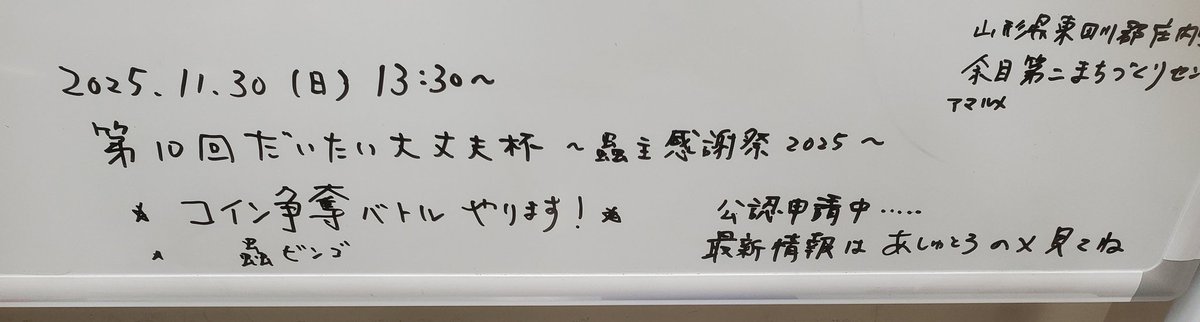 山形県東田川郡庄内
余目第二まちづくりセン
アマルメ
2025.11.30(日) 13:30~
第10回だいたい大丈夫杯 ~蟲主感謝祭2025~
* コイン争奪バトルやります! *
* 蟲ビンゴ
公認申請中.....
最新情報は あしゅとろのX見てね